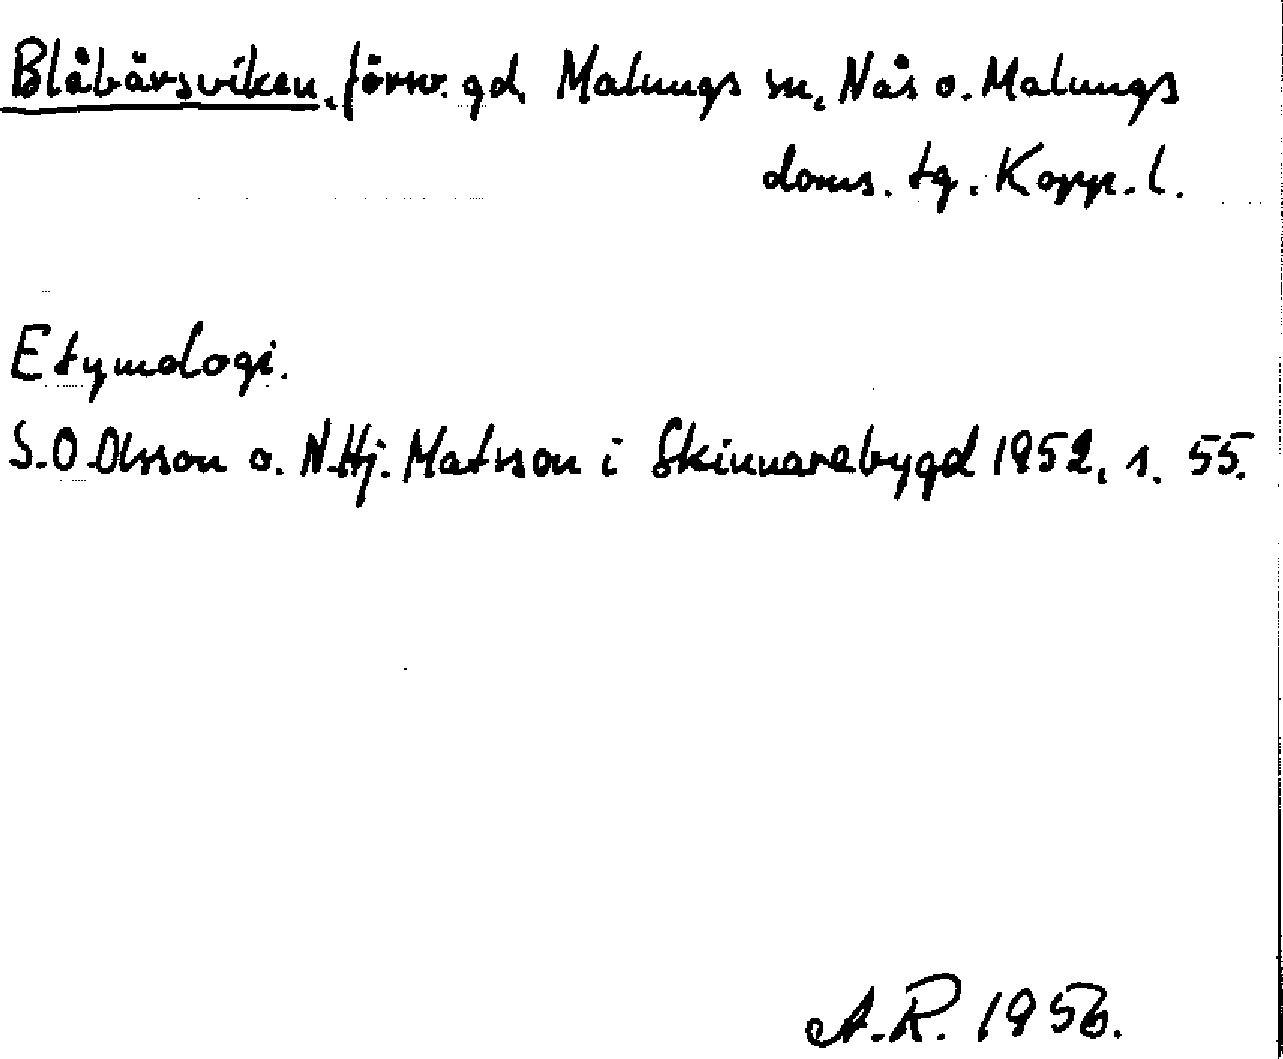 Blåbärsviken, försv. gd, Malungs sn, Nås o. Malungs
doms. tg. Kopp. l.
Etymologi.
S.O. Olsson o. N.Hj. Matsson i Skinnarebygd 1952, s. 55.
A.R. 1956.